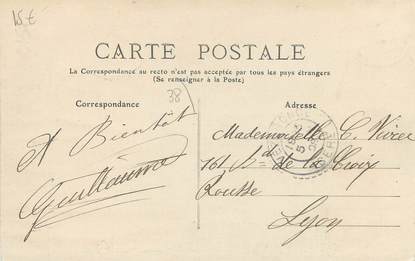 15 €
CARTE POSTALE
La Correspondance au recto n'est pas acceptée par tous les pays étrangers
(Se renseigner à la Poste)
38
Correspondance
A Bientôt
Guillaume
Adresse
Mademoiselle C.
161 Bd de la Croix
Rousse
Lyon